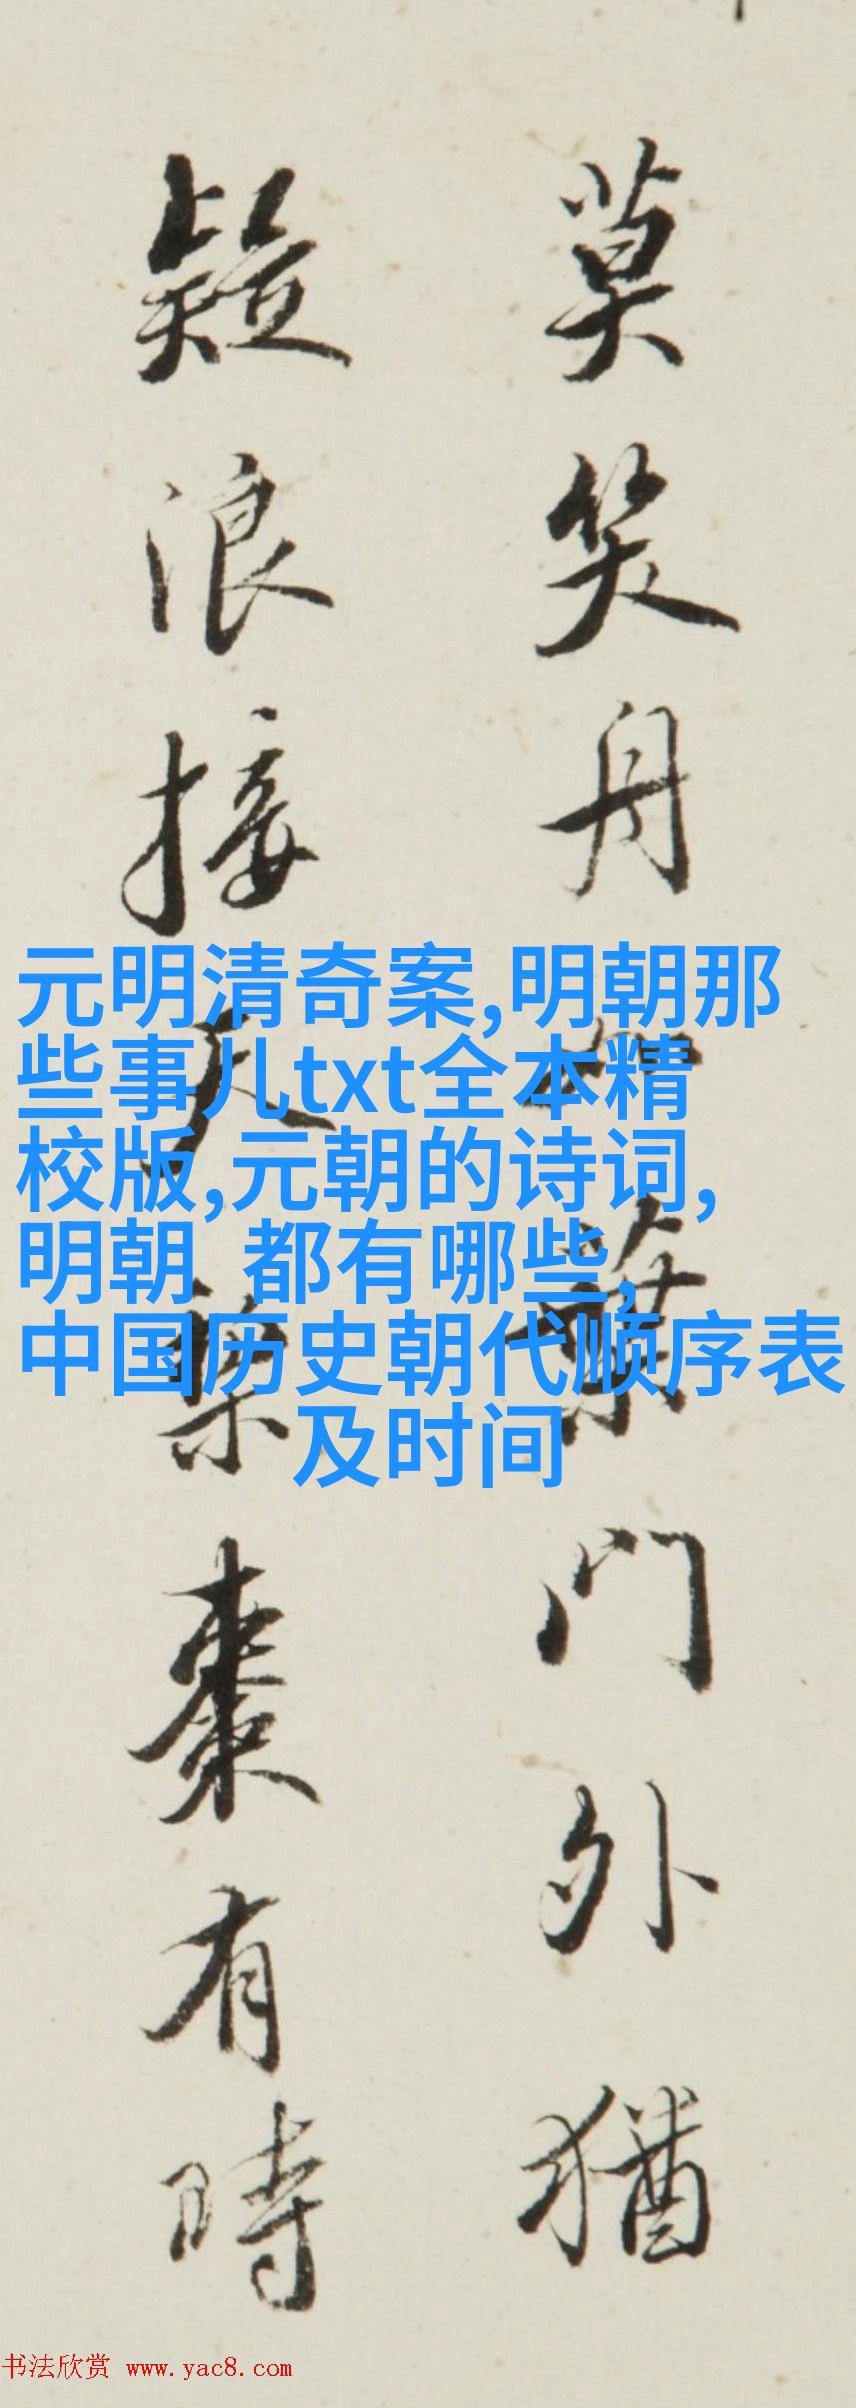 莫笑舟葉門外猶
疑浪接天棗有時
元明清奇案,明朝那
些事儿txt全本精
校版,元朝的诗词,
明朝 都有哪些,
中国历史朝代顺序表
及时间
书法欣赏 www.yac8.com